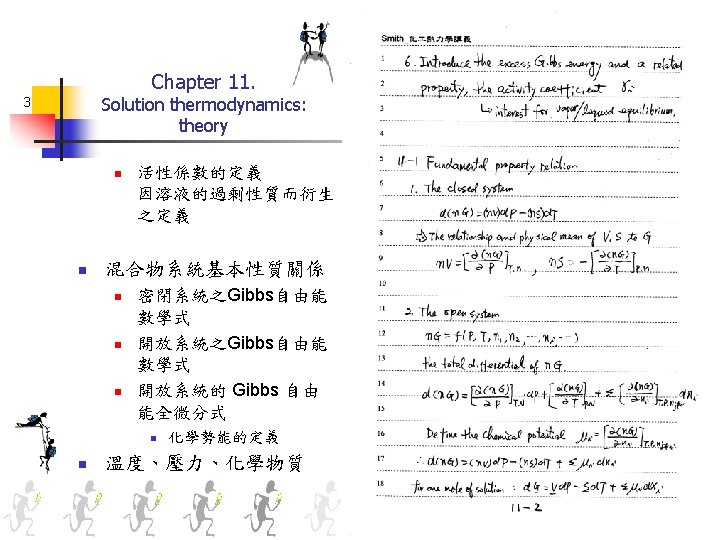 3
Chapter 11.
Solution thermodynamics:
theory
活性係數的定義
因溶液的過剩性質而衍生
之定義
混合物系統基本性質關係
密閉系統之Gibbs自由能
數學式
開放系統之Gibbs自由能
數學式
開放系統的 Gibbs 自由
能全微分式
化學勢能的定義
溫度、壓力、化學物質
Smith 化工熱力學講義
1 6. Introduce the excess Gibbs energy and a related
2 property, the activity coefficient γi
3 ↳ interest for vapor/liquid equilibrium.
4
5 11-1 Fundamental property relation
6 1. The closed system
7 d(nG)=(nV)dP-(nS)dT
8 ⇒ The relationship and physical mean of V.S to G
9 nV=[∂(nG)/∂P]T.n , nS=-[∂(nG)/∂T]P.n
10
11 2. The open system
12 nG = f(P, T, n1, n2, ...ni, ...)
13 the total differential of nG
14 d(nG)=[∂(nG)/∂P]T.n dP+[∂(nG)/∂T]P.n dT + Σ[∂(nG)/∂ni]T.P.nj dni
15
16 Define the chemical potential μi=[∂(nG)/∂ni]T.P.nj
17 ∴d(nG)=(nV)dP-(nS)dT + Σ μi dni
18 for one mole of solution: dG = VdP - SdT + Σ μi dxi
11-2